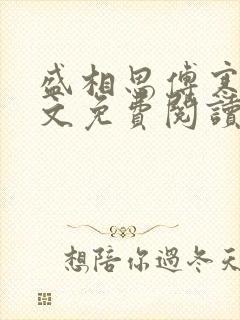 盛相思傅寒
文免費閱讀
想陪你過冬天